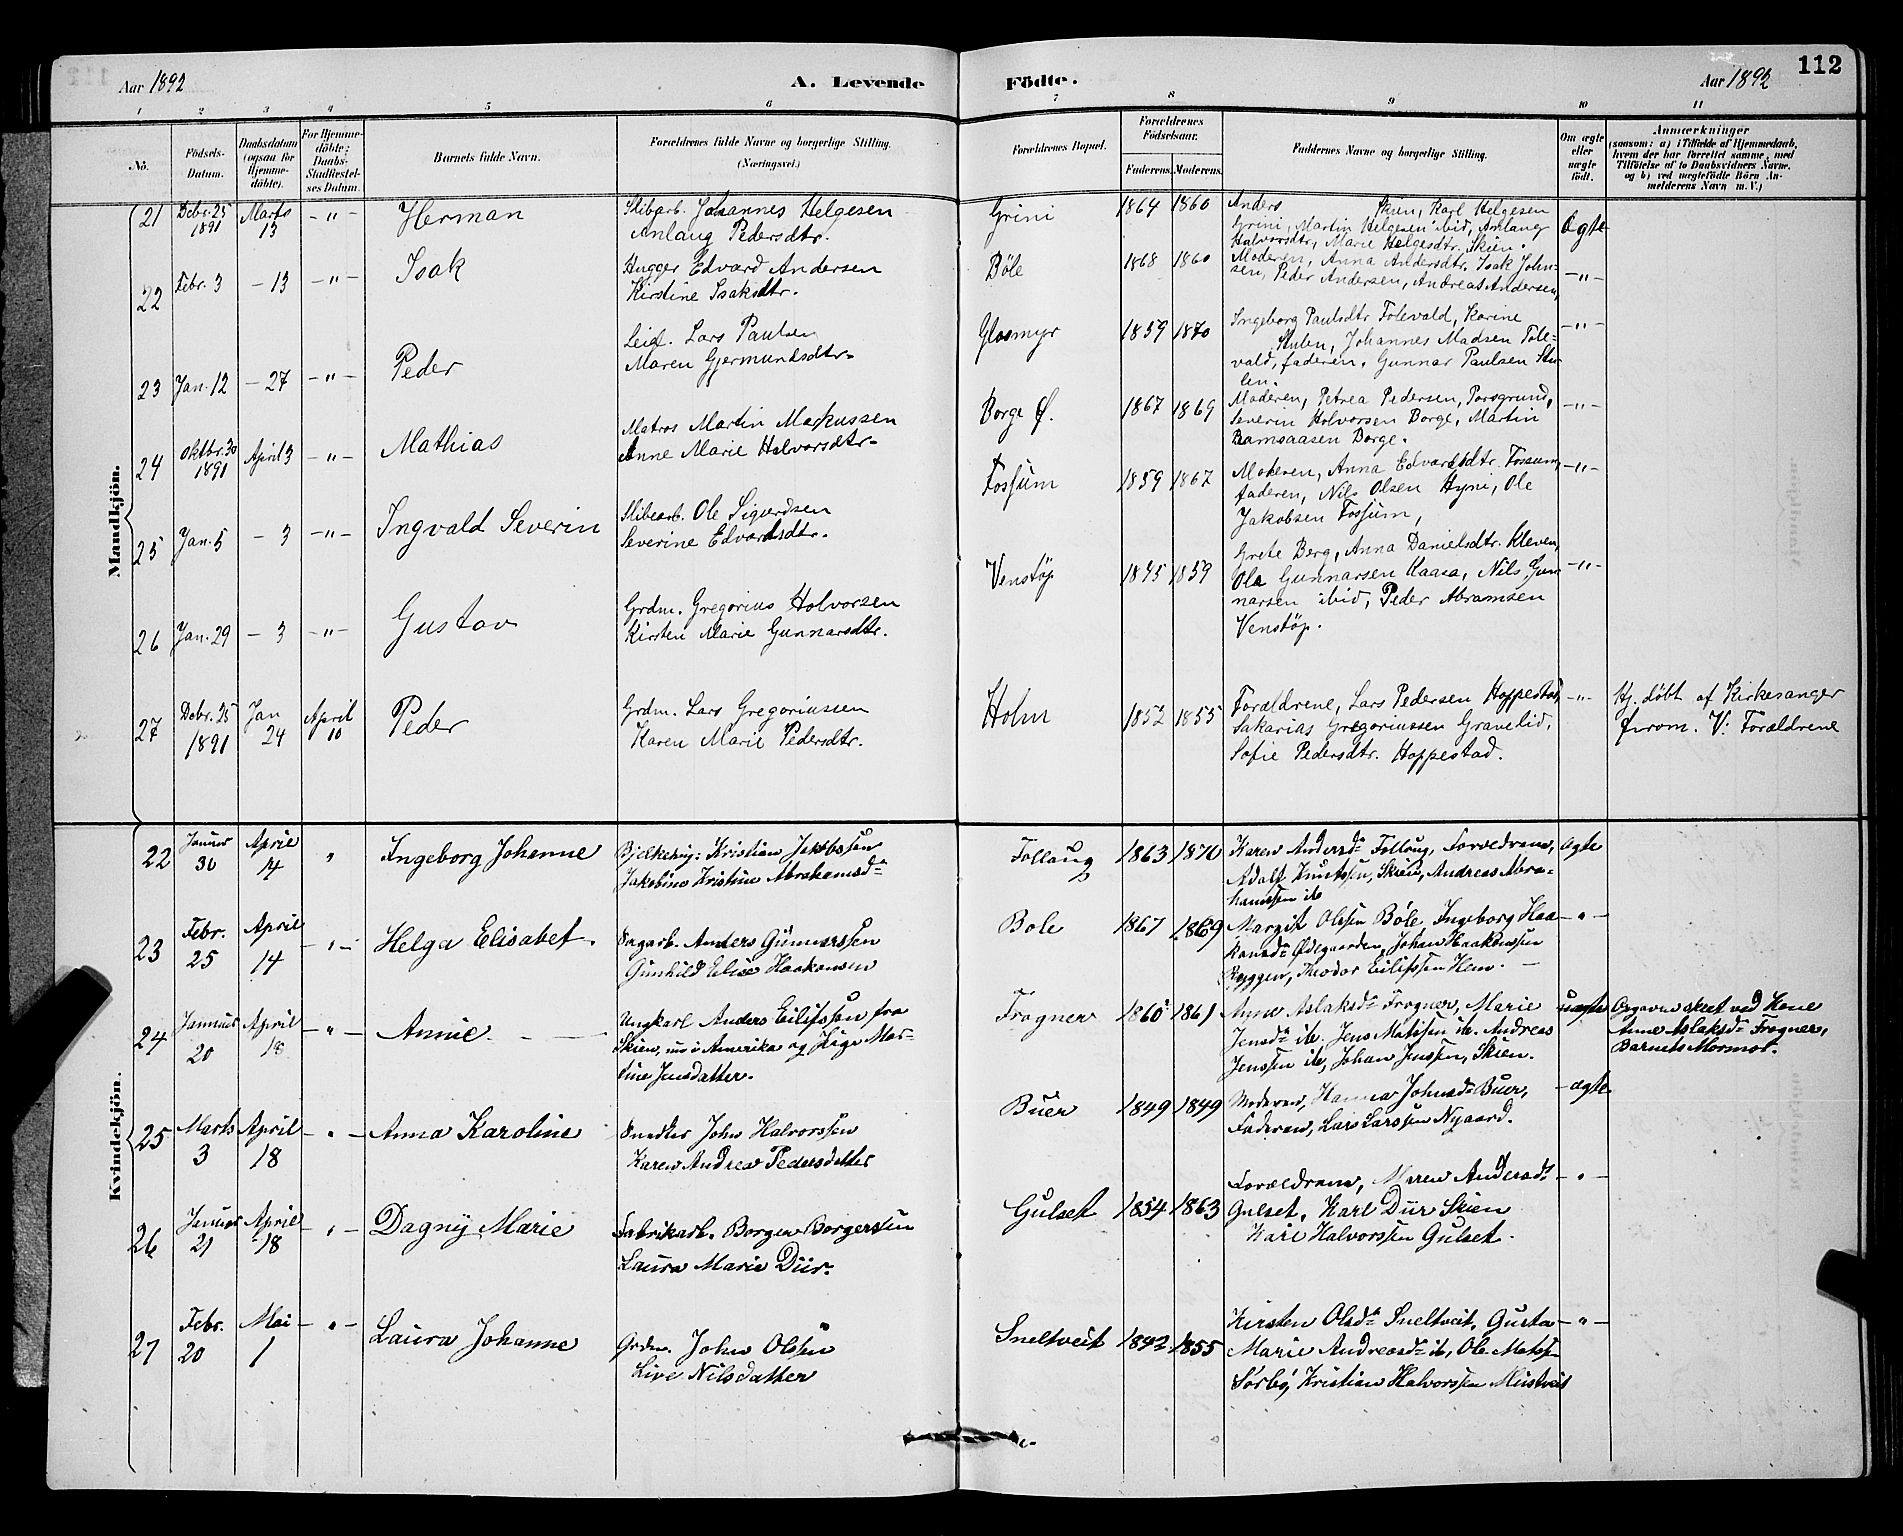 Aar 1892
A. Levende
Födte.
Aar 1892
112
1 2 3 4 5 6 7 8 9 10 11
No.
Födsels-
Datum.
Daabsdatum
(ogsaa for
Hjemme-
döbte).
For Hjemme-
döbte:
Daabs-
Stadfæstel-
ses Datum.
Barnets fulde Navn.
Forældrenes fulde Navne og borgerlige Stilling.
(Næringsvei.)
Forældrenes Bopæl.
Forældrenes
Födselsaar.
Faderens. Moderens.
Faddernes Navne og borgerlige Stilling.
Om ægte
eller
uægte
födt.
Anmærkninger
(saasom: a) i Tilfælde af Hjemmedaab,
hvem der har forrettet samme, med
Tilföielse af to Daabsvidners Navne,
og b) ved uægtefödte Börn An-
melderens Navn m. V.)
Mandkjön.
21 Debr. 25 1891 Marts 13 -"- Herman
Slibarb. Johannes Helgesen
Anlaug Pedersdtr.
Grini 1864 1860
Anders Skien, Karl Helgesen
Grini, Martin Helgesen ibid, Anlaug
Halvorsdtr, Marie Helgesdtr. Skien.
Ægte
22 Febr. 3 - 13 -"- Isak
Hugger Edvard Andersen
Kirstine Isaksdtr.
Bøle 1868 1860
Moderen, Anna Andersdtr. Isak John-
sen, Peder Andersen, Andreas Andersen,
-"-
23 Jan. 12 - 27 -"- Peder
Leig. Lars Paulsen
Maren Gjermundsdtr.
Glasmyr 1859 1870
Ingeborg Paulsdtr Folevald, Karine
Stulen, Johannes Madsen Fole-
vald, faderen, Gunnar Paulsen Stu-
len.
-"-
24 Oktbr. 30 1891 April 3 -"- Mathias
Matros Martin Markussen
Anne Marie Halvorsdtr.
Borge Ø. 1867 1869
Moderen, Petrea Pedersen, Porsgrund,
Severin Halvorsen Borge, Martin
Ramsaasen Borge.
-"-
25 Jan. 5 - 3 -"- Ingvald Severin
Slibearb. Ole Sigurdsen
Severine Edvardsdtr.
Fossum 1859 1867
Moderen, Anna Edvardsdtr. Fossum,
faderen, Nils Olsen Hyni, Ole
Jakobsen Fossum,
-"-
26 Jan. 29 - 3 -"- Gustav
Grdm. Gregorius Holvorsen
Kirsten Marie Gunnarsdtr.
Venstøp 1845 1859
Grete Berg, Anna Danielsdtr. Kleven,
Ola Gunnarsen Kaasa, Nils Gun-
narsen ibid, Peder Abramsen
Venstøp.
-"-
27 Debr. 25 1891 Jan 24 April 10 Peder
Grdm. Lars Gregoriussen
Karen Marie Pedersdtr.
Holm 1852 1855
Forældrene, Lars Pedersen Hoppestad,
Sakarias Gregoriussen Gravelid,
Sofie Pedersdtr. Hoppestad.
-"-
Hj. døbt af Kirkesanger
Ørom. V: Forældrene
Kvindekjön.
22 Januar 30 April 14 " Ingeborg Johanne
Kristian Jakobssen
Jakobine Kristine Abrahamsdr
Follaug 1863 1870
Karen Andersdr Follaug, Forældrene,
Adolf Knutssen, Skien, Andreas Abra-
hamssen ib
ægte
23 Febr. 25 April 14 -"- Helga Elisabet.
Sagarb. Anders Gunnerssen
Gunhild Elise Haakonsen
Bole 1867 1869
Margit Olssen Bøle, Ingeborg Haa-
konsdr Ødegaarden, Johan Haakonssen
Ryggen, Theodor Eilifssen Hem.
-"-
24 Januar 20 April 18 -"- Annie.
Ungkarl Anders Eilifssøn fra
Skien, nu i Amerika og Pige Mar-
tine Jensdatter.
Frogner 1860 1861
Anne Aslaksdr Frogner, Marie
Jensdr ib. Jens Matisen ib. Andreas
Jenssen ib, Johan Jenssen, Skien.
uægte
Opgaven skeet ved Kone
Anne Aslaksdr Frogner,
Barnets Mormor.
25 Marts 3 April 18 -"- Anna Karoline
Snedker John Halvorssen
Karen Andrea Pedersdatter
Buer 1849 1849
Moderen, Hanna Johnsdr Buer,
Faderen, Lars Larssen Nygaard.
ægte
26 Januar 21 April 18 -"- Dagny Marie
Fabrikarb. Borger Borgerssen
Laura Marie Diir.
Gulset 1854 1863
Forældrene, Maren Andersdr
Gulset, Karl Diir Skien
Karl Halvorssen Gulset.
-"-
27 Febr. 20 Mai 1 -"- Laura Johanne
Grdm. John Olssen
Live Nilsdatter
Sneltveit 1842 1855
Kirsten Olsdr Sneltveit, Gusta
Marie Andreasdr ib, Ole Mats-
Sørbø, Kristian Halvorssen Mustveit
-"-